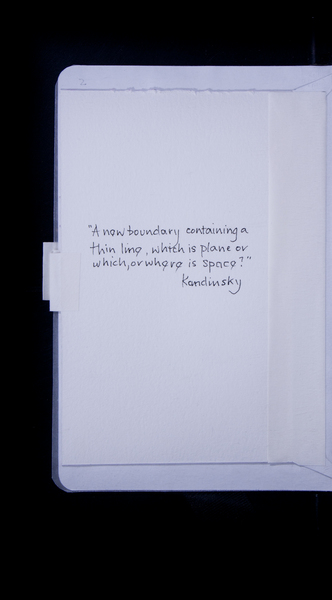 "A new boundary containing a
thin line, which is plane or
which, or where is space?"
Kandinsky